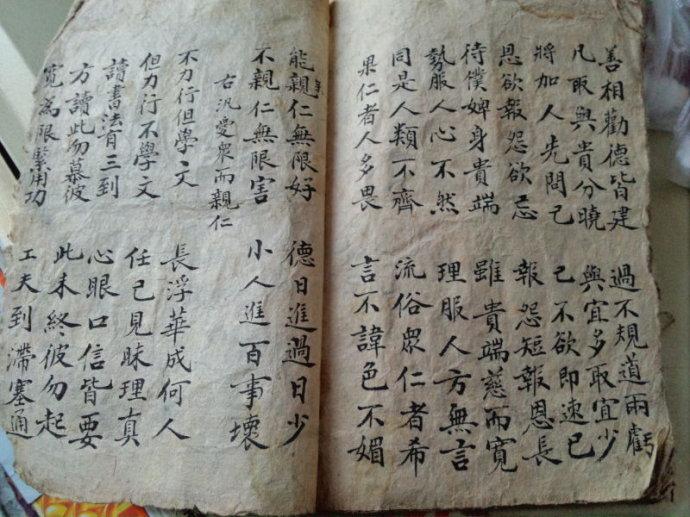 善相勸德皆建　過不規道兩虧
凡取與貴分曉　與宜多取宜少
將加人先問己　己不欲即速已
恩欲報怨欲忘　報怨短報恩長
待僕婢身貴端　雖貴端慈而寬
勢服人心不然　理服人方無言
同是人類不齊　流俗衆仁者希
果仁者人多畏　言不諱色不媚
能親仁無限好　德日進過日少
不親仁無限害　小人進百事壞
右汎愛衆而親仁
不力行但學文　長浮華成何人
但力行不學文　任己見昧理真
讀書法有三到　心眼口信皆要
方讀此勿慕彼　此未終彼勿起
寬為限緊用功　工夫到滯塞通